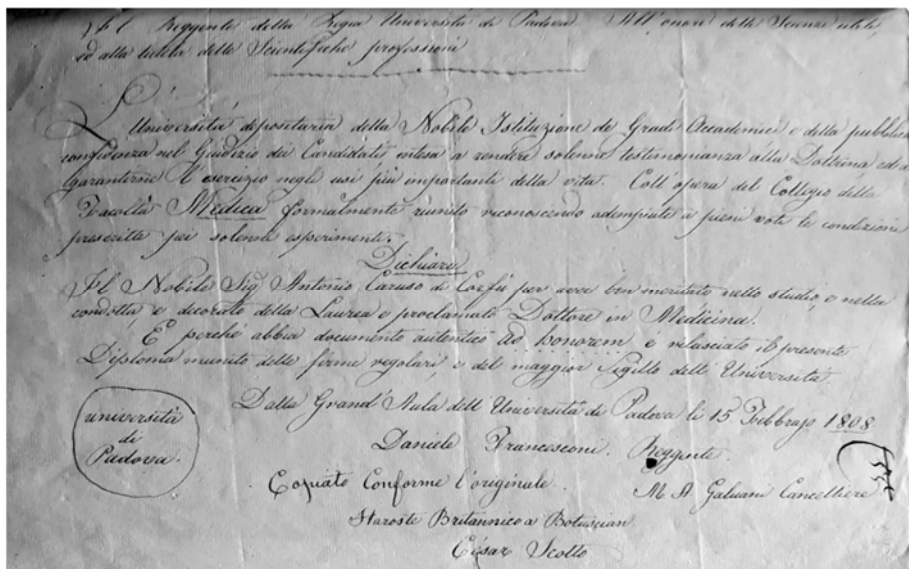 Il Reggente della Regia Università di Padova. All'onore delle Scienze utili,
ed alla tutela delle Scientifiche professioni
L'Università depositaria della Nobile Istituzione de Gradi Accademici e della pubblica
confidenza nel Giudizio dei Candidati intesa a rendere solenne testimonianza alla Dottrina ed a
garantirne l'esercizio negli usi più importanti della vita. Coll'opera del Collegio della
Facoltà Medica formalmente riunito riconoscendo adempiute a pieni voti le condizioni
prescritte pei solenni esperimenti.
Dichiara
Il Nobile Sig. Antonio Caruso di Corfù per aver ben meritato nello studio, e nella
condotta e decorato della Laurea e proclamato Dottore in Medicina.
E perchè abbia documento autentico ad honorem è rilasciato il presente
Diploma munito delle firme regolari, e del maggior Sigillo dell'Università.
Dalla Grand'Aula dell'Università di Padova li 15 Febbrajo 1808
università
di
Padova.
Daniele Francesconi. Reggente.
Copiato Conforme l'originale.
M A Galvani Cancelliere
Staroste Britannico a Botuscian
César Scotto